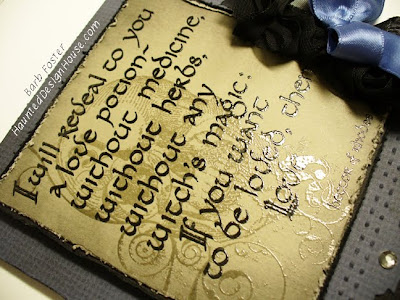 Barb Foster
HauntedDesignHouse.com
I will reveal to you
a love potion~
without medicine,
without herbs,
without any
witch's magic;
If you want
to be loved, then
love